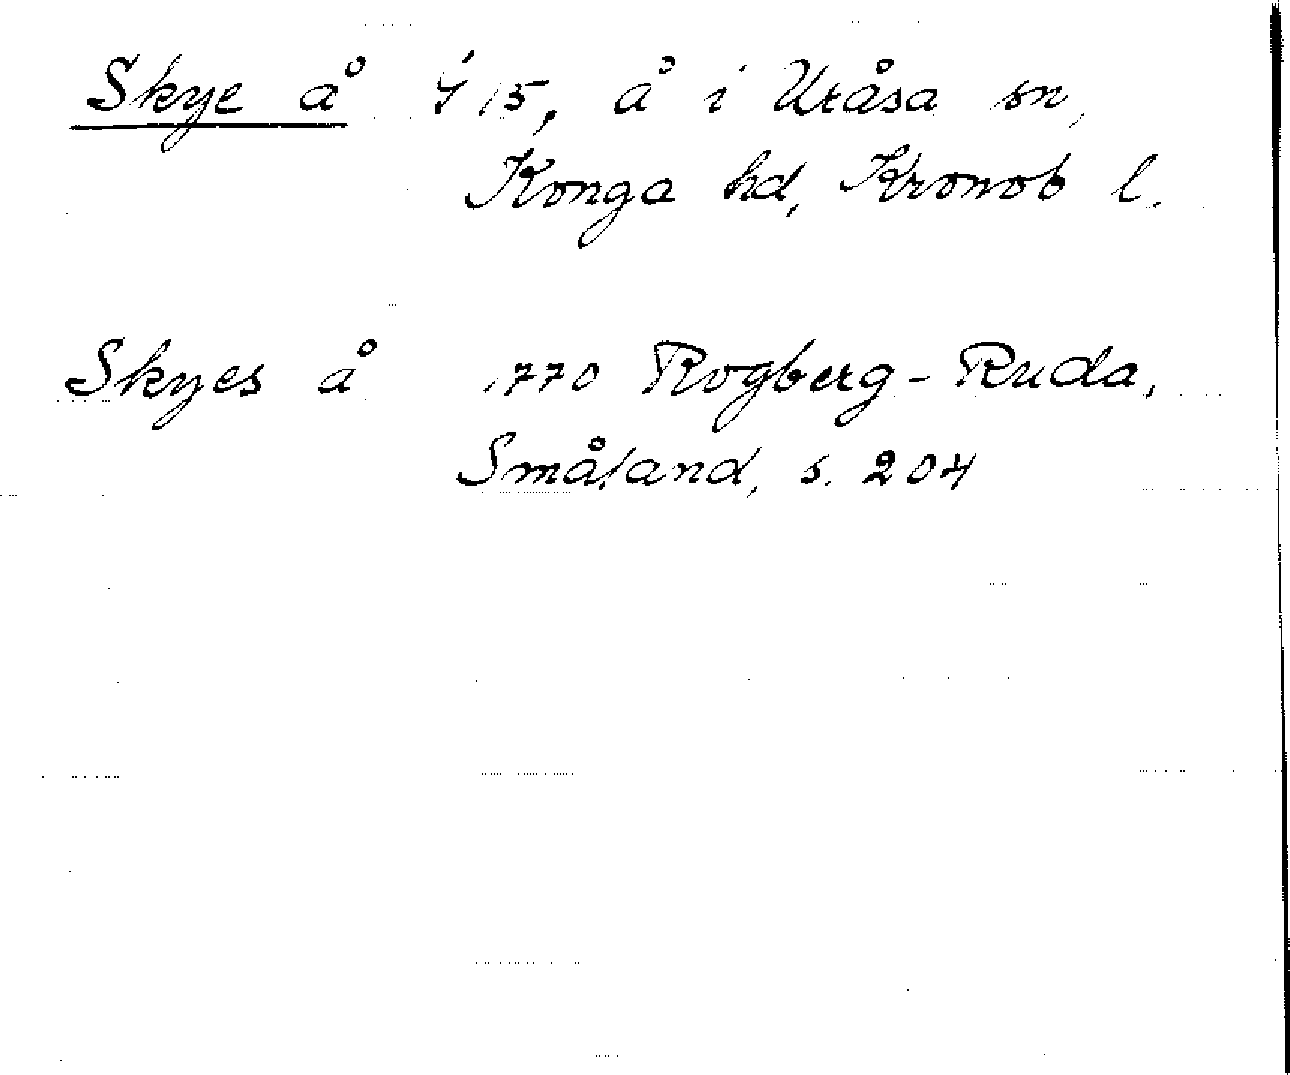 Skye å 415, å i Uråsa sn,
Konga hd, Kronob l.
Skyes å 1770 Rogberg-Ruda,
Småland, s. 204